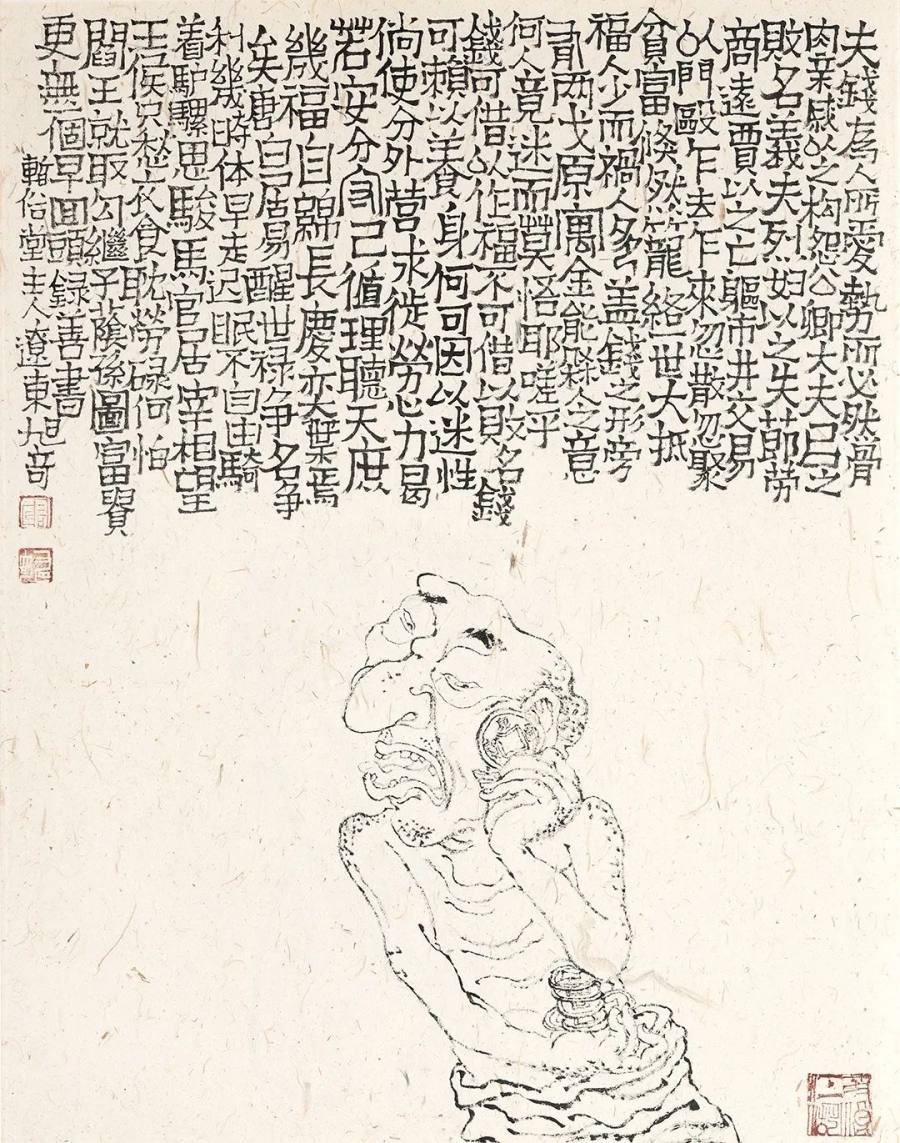 夫錢爲人所愛勢所必然骨
肉亲戚以之构怨公卿大夫㠯之
敗名義夫烈婦以之失節劳
商遠賈以之亡軀市井交易
以之門毆乍去乍來忽散忽聚
貧富倏然笼絡一世大抵
福人少而禍人多盖錢之形旁
有两戈原寓金能殺人之意
何人竟迷而莫悟耶嗟乎
錢可借以作福不可借以敗名錢
可賴以養身何可因以迷性
倘使分外营求徙劳心力曷
若安分守己循理聽天庶
幾福自綿長慶亦葉焉
矣唐白居易醒世禄争名争
利幾時休早走迟眠不自由騎
着馿騾思駿馬官居宰相望
王侯只愁衣食耽勞碌何怕
閻王就取勾繼子蔭孫圖富貴
更無一個早回頭録善書
堂主人遼東旭奇